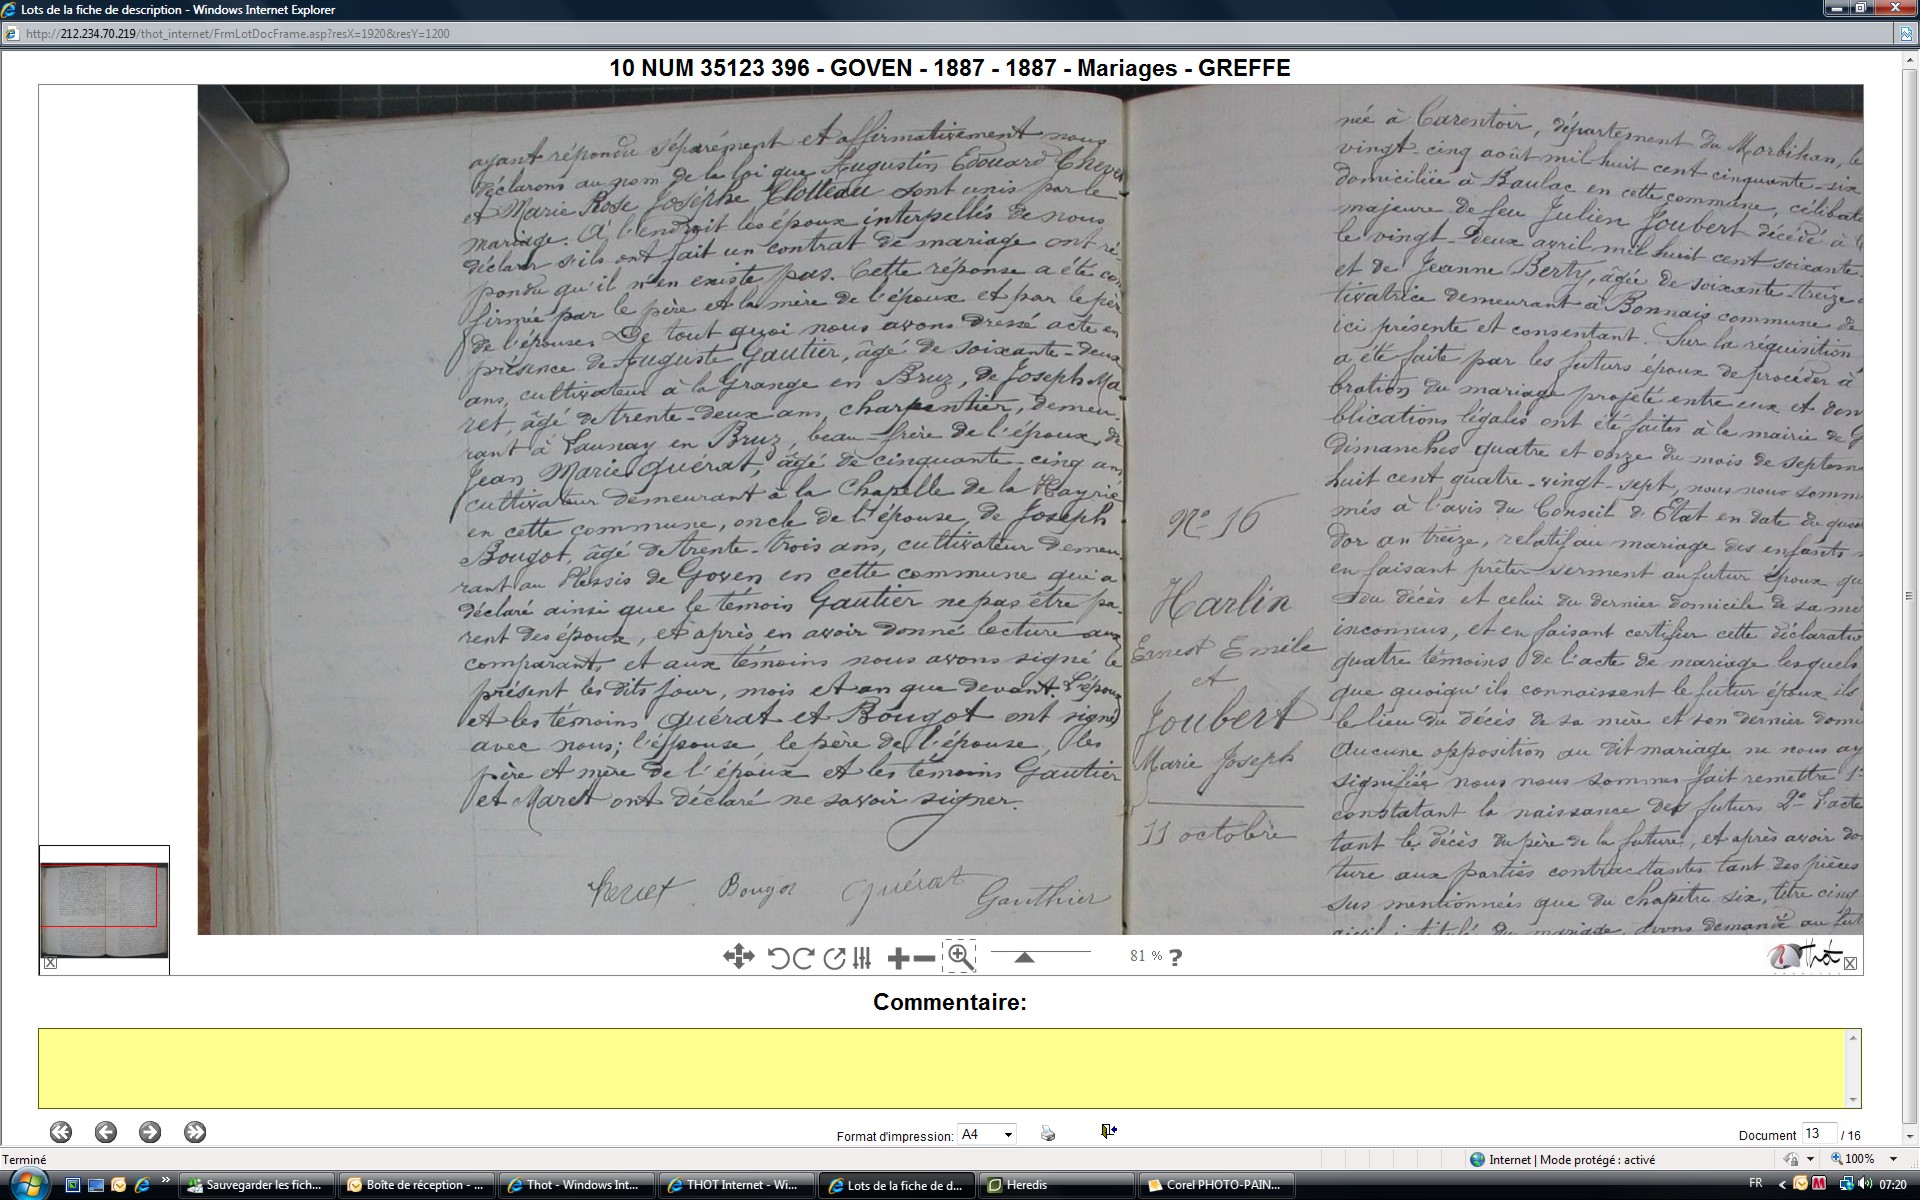 Lots de la fiche de description - Windows Internet Explorer
http://212.234.70.219/thot_internet/FrmLotDocFrame.asp?resX=1920&resY=1200
10 NUM 35123 396 - GOVEN - 1887 - 1887 - Mariages - GREFFE
ayant répondu séparément et affirmativement nous
déclarons au nom de la loi que Augustin Edouard
et Marie Rose Josèphe Clolteau sont unis par le
mariage. A l'endroit les époux interpellés de nous
déclarer s'ils ont fait un contrat de mariage ont ré-
pondu qu'il n'en existe pas. Cette réponse a été con
firmée par le père et la mère de l'époux et par le père
de l'épouse. De tout quoi nous avons dressé acte en
présence de Auguste Gautier, âgé de soixante-deux
ans, cultivateur à la Grange en Bruz, de Joseph Ma
ret, âgé de trente-deux ans, charpentier, demeu-
rant à Launay en Bruz, beau-frère de l'époux, de
Jean Marie Quérat, âgé de cinquante-cinq ans
cultivateur demeurant à la Chapelle de la Hayrie
en cette commune, oncle de l'épouse, de Joseph
Bougot, âgé de trente-trois ans, cultivateur demeu-
rant au Plessis de Goven en cette commune qui a
déclaré ainsi que le témoin Gautier ne pas être pa-
rent des époux, et après en avoir donné lecture aux
comparant, et aux témoins nous avons signé le
présent les dits jour, mois et an que devant. L'époux
et les témoins Quérat et Bougot ont signé
avec nous; l'épouse, le père de l'épouse, les
père et mère de l'époux et les témoins Gautier
et Maret ont déclaré ne savoir signer.
Bougot Quérat
Gauthier
N° 16
Harlin
Ernest Emile
et
Joubert
Marie Joseph
11 octobre
née à Carentoir, département du Morbihan, le
vingt-cinq août mil huit cent cinquante-six
domiciliée à Baulac en cette commune, célibat
majeure de feu Julien Joubert décédé à
le vingt-deux avril mil huit cent soixante-
et de Jeanne Berty, âgée de soixante-treize
tivatrice demeurant à Bonnais commune de
ici présente et consentant. Sur la réquisition
a été faite par les futurs époux de procéder à
bration du mariage projeté entre eux et don
blications légales ont été faites à la mairie de G
dimanches quatre et onze du mois de septem
huit cent quatre-vingt-sept, nous nous somm
més à l'avis du Conseil d'Etat en date du qua
dor an treize, relatif au mariage des enfants
en faisant prêter serment au futur époux qu
du décès et celui du dernier domicile de sa mè
inconnus, et en faisant certifier cette déclaratio
quatre témoins de l'acte de mariage lesquels
que quoiqu'ils connaissent le futur époux ils
le lieu du décès de sa mère et son dernier domi
Aucune opposition au dit mariage ne nous ay
signifiée nous nous sommes fait remettre 1°
constatant la naissance des futurs 2° l'acte
tant le décès du père de la future, et après avoir do
ture aux parties contractantes tant des pièces
sus mentionnées que du chapitre six, titre cinq
du mariage, avons demandé au fut
81 % ?
Thot
Commentaire:
Format d'impression: A4
Document 13 / 16
Terminé
Internet | Mode protégé : activé
100%
Sauvegarder les fich...
Boîte de réception - ...
Thot - Windows Int...
THOT Internet - Wi...
Lots de la fiche de d...
Heredis
Corel PHOTO-PAIN...
FR
07:20